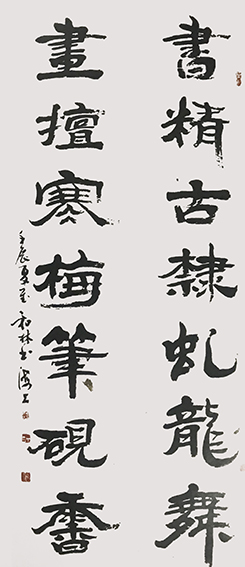 書精古隸虬龍舞
畫擅寒梅筆硯香
壬辰夏至和林書海上